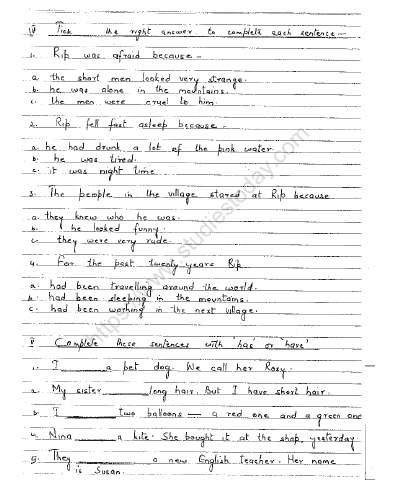 IV Tick the right answer to complete each sentence -
1. Rip was afraid because -
a. the short men looked very strange.
b. he was alone in the mountains.
c. the men were cruel to him.
2. Rip fell fast asleep because -
a. he had drunk a lot of the pink water
b. he was tired.
c. it was night time
3. The people in the village stared at Rip because
a. they knew who he was.
b. he looked funny.
c. they were very rude.
4. For the past twenty years Rip
a. had been travelling around the world.
b. had been sleeping in the mountains.
c. had been working in the next village.
V Complete these sentences with 'has' or 'have'
1. I ______ a pet dog. We call her Rosy.
2. My sister ______ long hair. But I have short hair.
3. I ______ two balloons — a red one and a green one
4. Nina ______ a kite. She bought it at the shop, yesterday.
5. They ______ a new English teacher. Her name
is Susan.
https://www.studiestoday.com